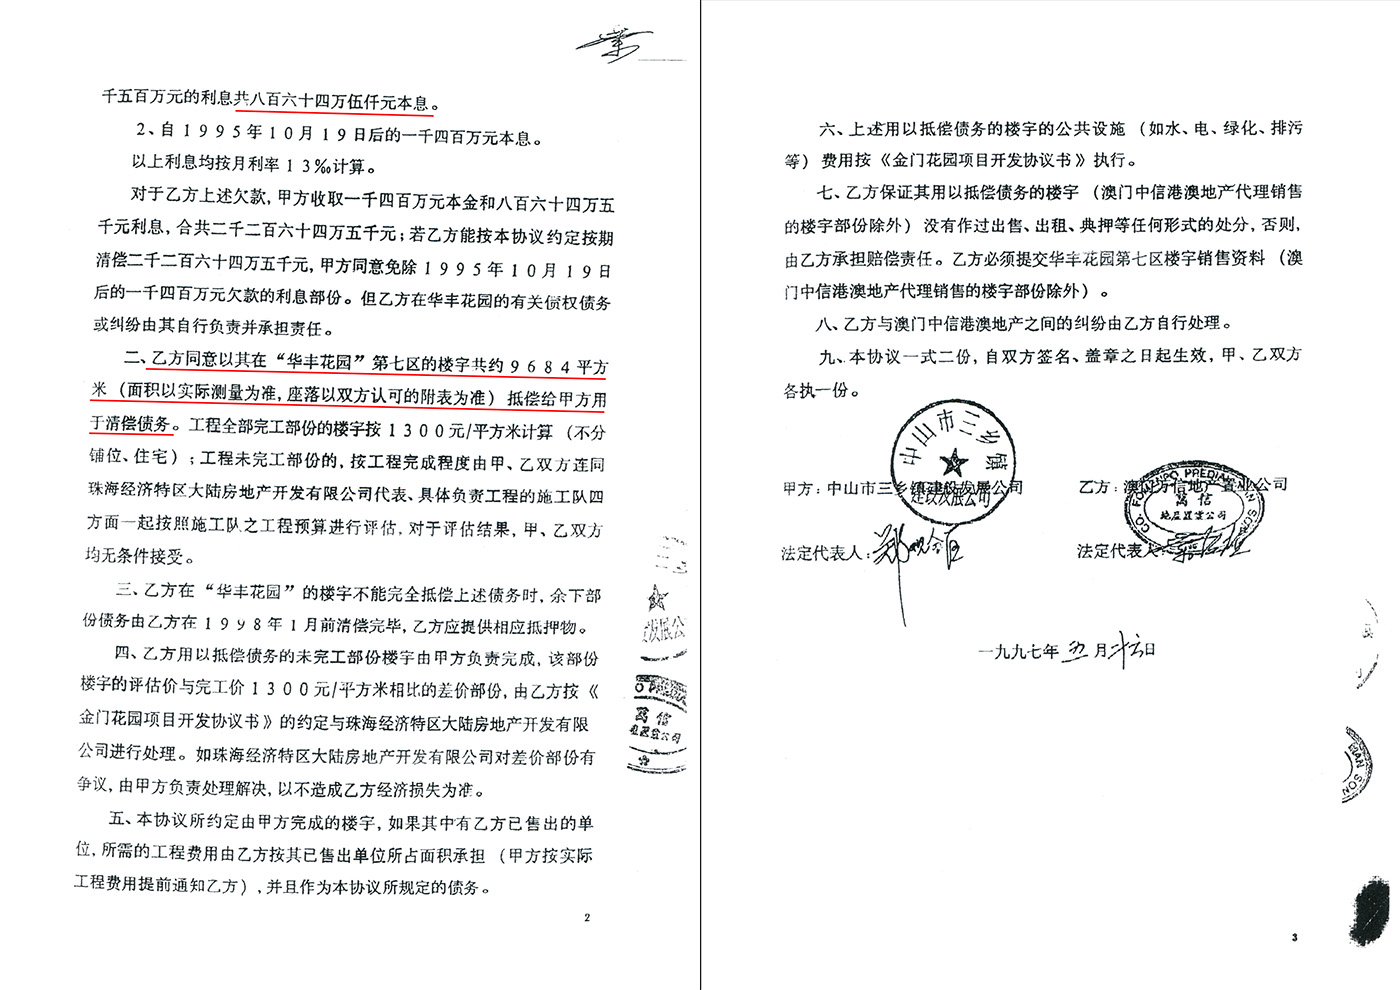 千五百万元的利息共八百六十四万伍仟元本息。
2、自1995年10月19日后的一千四百万元本息。
以上利息均按月利率13‰计算。
对于乙方上述欠款，甲方收取一千四百万元本金和八百六十四万五
千元利息，合共二千二百六十四万五千元；若乙方能按本协议约定按期
清偿二千二百六十四万五千元，甲方同意免除1995年10月19日
后的一千四百万元欠款的利息部份。但乙方在华丰花园的有关债权债务
或纠纷由其自行负责并承担责任。
二、乙方同意以其在“华丰花园”第七区的楼宇共约9684平方
米（面积以实际测量为准，座落以双方认可的附表为准）抵偿给甲方用
于清偿债务。工程全部完工部份的楼宇按1300元/平方米计算（不分
铺位、住宅）；工程未完工部份的，按工程完成程度由甲、乙双方连同
珠海经济特区大陆房地产开发有限公司代表、具体负责工程的施工队四
方面一起按照施工队之工程预算进行评估，对于评估结果，甲、乙双方
均无条件接受。
三、乙方在“华丰花园”的楼宇不能完全抵偿上述债务时，余下部
份债务由乙方在1998年1月前清偿完毕，乙方应提供相应抵押物。
四、乙方用以抵偿债务的未完工部份楼宇由甲方负责完成，该部份
楼宇的评估价与完工价1300元/平方米相比的差价部份，由乙方按《
金门花园项目开发协议书》的约定与珠海经济特区大陆房地产开发有限
公司进行处理。如珠海经济特区大陆房地产开发有限公司对差价部份有
争议，由甲方负责处理解决，以不造成乙方经济损失为准。
五、本协议所约定由甲方完成的楼宇，如果其中有乙方已售出的单
位，所需的工程费用由乙方按其已售出单位所占面积承担（甲方按实际
工程费用提前通知乙方），并且作为本协议所规定的债务。
发展公
O PREDIA
萬信
地產置業公司
2
六、上述用以抵偿债务的楼宇的公共设施（如水、电、绿化、排污
等）费用按《金门花园项目开发协议书》执行。
七、乙方保证其用以抵偿债务的楼宇（澳门中信港澳地产代理销售
的楼宇部份除外）没有作过出售、出租、典押等任何形式的处分，否则，
由乙方承担赔偿责任。乙方必须提交华丰花园第七区楼宇销售资料（澳
门中信港澳地产代理销售的楼宇部份除外）。
八、乙方与澳门中信港澳地产之间的纠纷由乙方自行处理。
九、本协议一式二份，自双方签名、盖章之日起生效，甲、乙双方
各执一份。
中山市三乡镇
建设发展公司
甲方：中山市三乡镇建设发展公司
乙方：澳门万信地产置业公司
萬信
地產置業公司
法定代表人：
法定代表人：
一九九七年五月廿六日
IAN SON
3